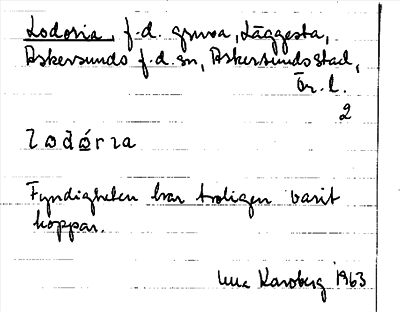 Lodoria, f.d. gruva, Läggesta,
Askersunds f.d. sn, Askersunds stad,
Ör. l.
2
lodórıa
Fyndigheten har troligen varit
koppar.
Karlberg 1963